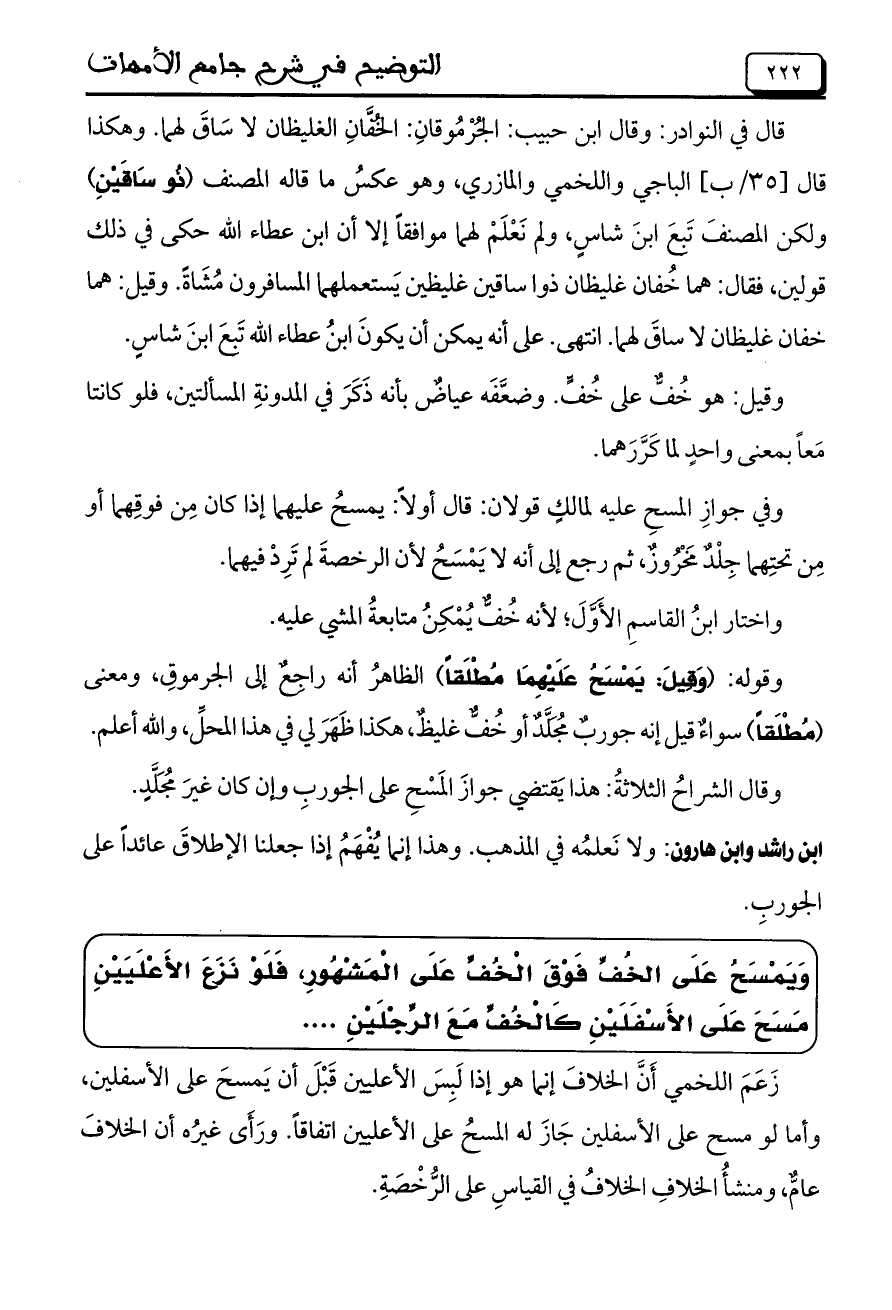 ٢٢٢
التوضيح في شرح جامع الأمهات
قال في النوادر: وقال ابن حبيب: الجُرْمُوقانِ: الخُفَّانِ الغليظان لا سَاقَ لهما. وهكذا
قال [٣٥/ ب] الباجي واللخمي والمازري، وهو عكسُ ما قاله المصنف (ذُو سَاقَيْنِ)
ولكن المصنفَ تَبِعَ ابنَ شاسٍ، ولم نَعْلَمْ لهما موافقاً إلا أن ابن عطاء الله حكى في ذلك
قولين، فقال: هما خُفان غليظان ذوا ساقين غليظين يَستعملهما المسافرون مُشَاةً. وقيل: هما
خفان غليظان لا ساقَ لهما. انتهى. على أنه يمكن أن يكونَ ابنُ عطاء الله تَبِعَ ابنَ شاسٍ.
وقيل: هو خُفٌّ على خُفٍّ. وضعَّفَه عياضٌ بأنه ذَكَرَ في المدونةِ المسألتين، فلو كانتا
مَعاً بمعنى واحدٍ لما كَرَّرَهما.
وفي جوازِ المسحِ عليه لمالكٍ قولان: قال أولاً: يمسحُ عليهما إذا كان مِن فوقِهما أو
مِن تحتِهما جِلْدٌ مَخْرُوزٌ، ثم رجع إلى أنه لا يَمْسَحُ لأن الرخصةَ لم تَرِدْ فيهما.
واختار ابنُ القاسمِ الأَوَّلَ؛ لأنه خُفٌّ يُمْكِنُ متابعةُ المشي عليه.
وقوله: (وَقِيلَ: يَمْسَحُ عَلَيْهِمَا مُطْلَقاً) الظاهرُ أنه راجِعٌ إلى الجرموقِ، ومعنى
(مُطْلَقاً) سواءٌ قيل إنه جوربٌ مُجَلَّدٌ أو خُفٌّ غليظٌ، هكذا ظَهَرَ لي في هذا المحلِّ، والله أعلم.
وقال الشراحُ الثلاثةُ: هذا يَقتضي جوازَ المَسْحِ على الجوربِ وإن كان غيرَ مُجَلَّدٍ.
ابن راشد وابن هارون: ولا نَعلمُه في المذهب. وهذا إنما يُفْهَمُ إذا جعلنا الإطلاقَ عائداً على
الجوربِ.
وَيَمْسَحُ عَلَى الخُفِّ فَوْقَ الْخُفِّ عَلَى الْمَشْهُورِ، فَلَوْ نَزَعَ الأَعْلَيَيْنِ
مَسَحَ عَلَى الأَسْفَلَيْنِ كَالْخُفِّ مَعَ الرِّجْلَيْنِ ....
زَعَمَ اللخمي أَنَّ الخلافَ إنما هو إذا لَبِسَ الأعليين قَبْلَ أن يَمسحَ على الأسفلين،
وأما لو مسح على الأسفلين جَازَ له المسحُ على الأعليين اتفاقاً. ورَأَى غيرُه أن الخلافَ
عامٌّ، ومنشأُ الخلافِ الخلافُ في القياسِ على الرُّخْصَةِ.